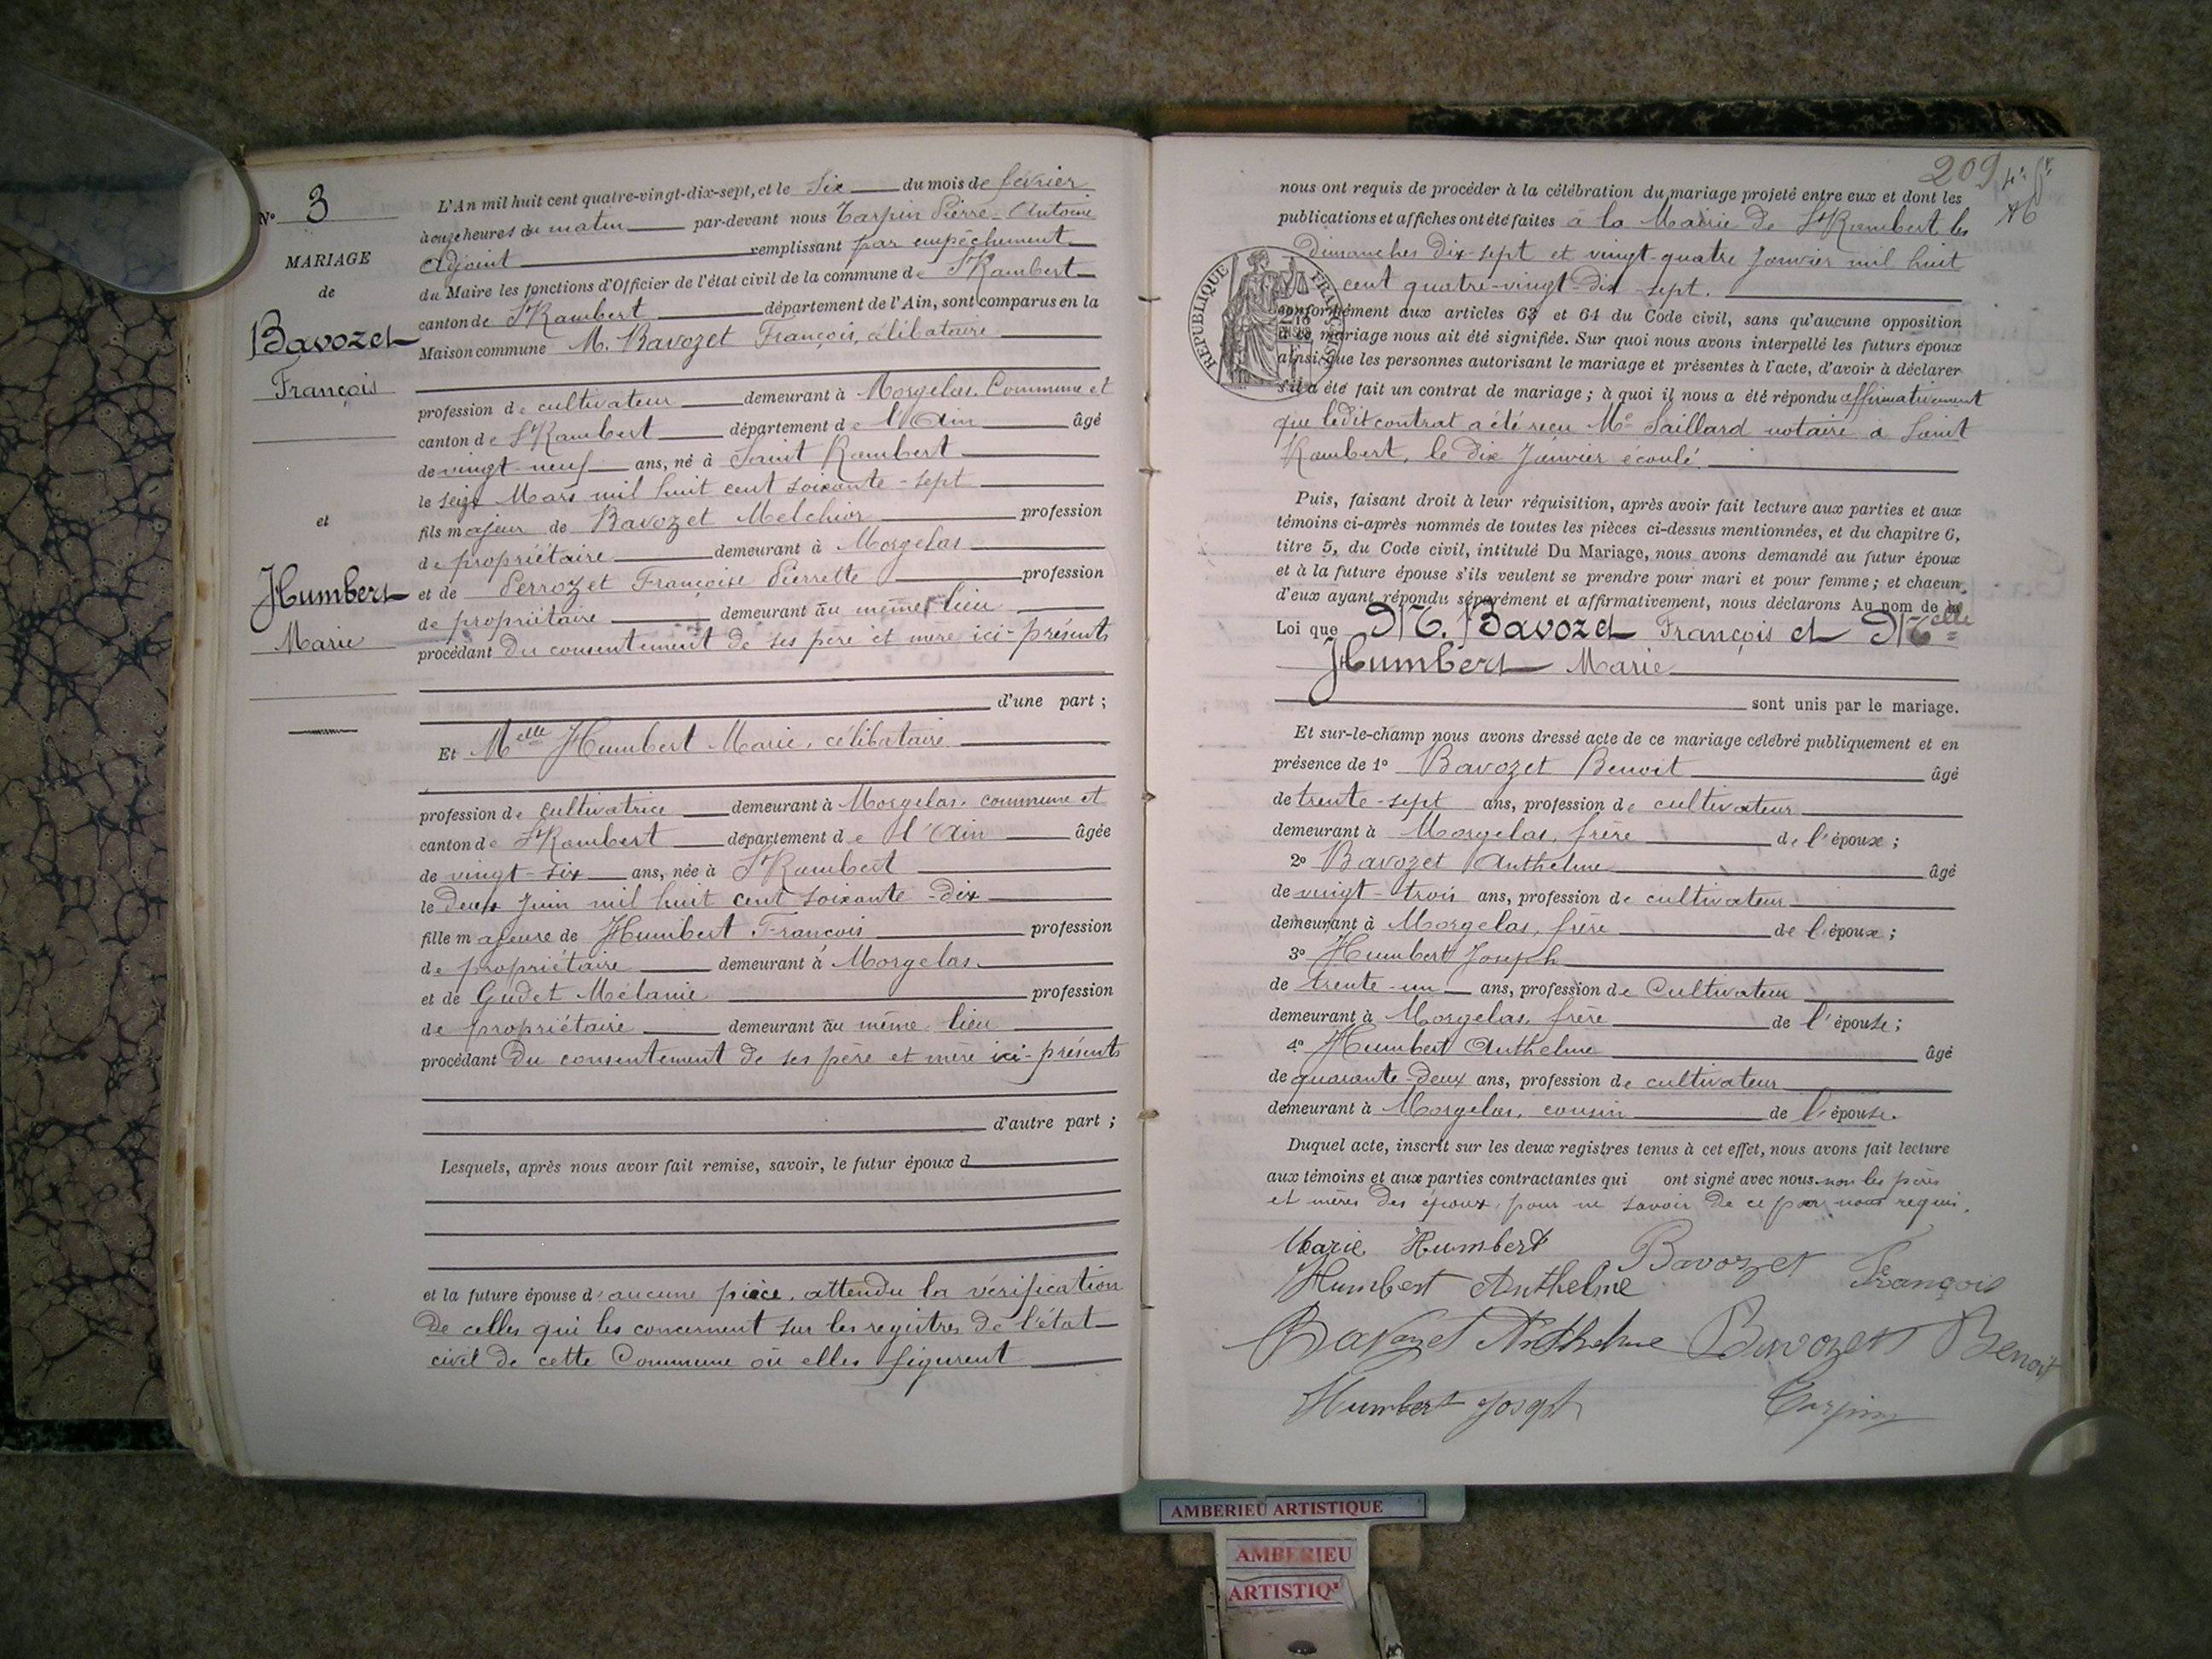 N° 3
MARIAGE
de
Bavozet
François
et
Humbert
Marie
L'An mil huit cent quatre-vingt-dix-sept, et le Six du mois de février
à onze heures du matin par-devant nous Tarpin Pierre-Antoine
Adjoint remplissant par empêchement
du Maire les fonctions d'Officier de l'état civil de la commune de St Rambert
canton de St Rambert département de l'Ain, sont comparus en la
Maison commune M. Bavozet François, célibataire
profession de cultivateur demeurant à Morgelas, Commune et
canton de St Rambert département de l'Ain âgé
de vingt-neuf ans, né à Saint Rambert
le seize Mars mil huit cent soixante-sept
fils majeur de Bavozet Melchior profession
de propriétaire demeurant à Morgelas
et de Perrozet Françoise Pierrette profession
de propriétaire demeurant au même lieu
procédant du consentement de ses père et mère ici-présents
d'une part ;
Et Melle Humbert Marie, célibataire
profession de cultivatrice demeurant à Morgelas, commune et
canton de St Rambert département de l'Ain âgée
de vingt-six ans, née à St Rambert
le deux Juin mil huit cent soixante-dix
fille majeure de Humbert François profession
de propriétaire demeurant à Morgelas
et de Gudet Mélanie profession
de propriétaire demeurant au même lieu
procédant du consentement de ses père et mère ici-présents
d'autre part ;
Lesquels, après nous avoir fait remise, savoir, le futur époux d
et la future épouse d'aucune pièce, attendu la vérification
de celles qui les concernent sur les registres de l'état
civil de cette Commune où elles figurent
209
nous ont requis de procéder à la célébration du mariage projeté entre eux et dont les
publications et affiches ont été faites à la Mairie de St Rambert les
dimanches dix-sept et vingt-quatre Janvier mil huit
cent quatre-vingt-dix-sept.
RÉPUBLIQUE FRANÇAISE
conformément aux articles 63 et 64 du Code civil, sans qu'aucune opposition
à ce mariage nous ait été signifiée. Sur quoi nous avons interpellé les futurs époux
ainsi que les personnes autorisant le mariage et présentes à l'acte, d'avoir à déclarer
s'il a été fait un contrat de mariage ; à quoi il nous a été répondu affirmativement
que ledit contrat a été reçu Me Saillard notaire a Saint
Rambert, le dix Janvier ecoulé.
Puis, faisant droit à leur réquisition, après avoir fait lecture aux parties et aux
témoins ci-après nommés de toutes les pièces ci-dessus mentionnées, et du chapitre 6,
titre 5, du Code civil, intitulé Du Mariage, nous avons demandé au futur époux
et à la future épouse s'ils veulent se prendre pour mari et pour femme ; et chacun
d'eux ayant répondu séparément et affirmativement, nous déclarons Au nom de la
Loi que M. Bavozet François et Melle
Humbert Marie
sont unis par le mariage.
Et sur-le-champ nous avons dressé acte de ce mariage célébré publiquement et en
présence de 1° Bavozet Benoit âgé
de trente-sept ans, profession de cultivateur
demeurant à Morgelas, frère de l'époux ;
2° Bavozet Anthelme âgé
de vingt-trois ans, profession de cultivateur
demeurant à Morgelas, frère de l'époux ;
3° Humbert Joseph
de trente-un ans, profession de Cultivateur
demeurant à Morgelas, frère de l'épouse ;
4° Humbert Anthelme âgé
de quarante-deux ans, profession de cultivateur
demeurant à Morgelas, cousin de l'épouse.
Duquel acte, inscrit sur les deux registres tenus à cet effet, nous avons fait lecture
aux témoins et aux parties contractantes qui ont signé avec nous non les pères
et mères des époux, pour ne savoir de ce par nous requis.
Marie Humbert Bavozet François
Humbert Anthelme
Bavozet Anthelme Bavozet Benoit
Humbert Joseph Tarpin
AMBERIEU ARTISTIQUE
AMBERIEU
ARTISTIQ